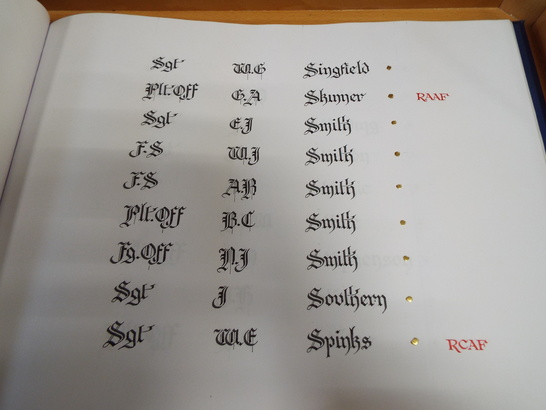 Sgt W.G Singfield
Plt.Off G.A Skinner RAAF
Sgt E.J Smith
F.S W.J Smith
F.S A.B Smith
Plt.Off B.C Smith
Fg.Off N.J Smith
Sgt J Southern
Sgt W.E Spinks RCAF